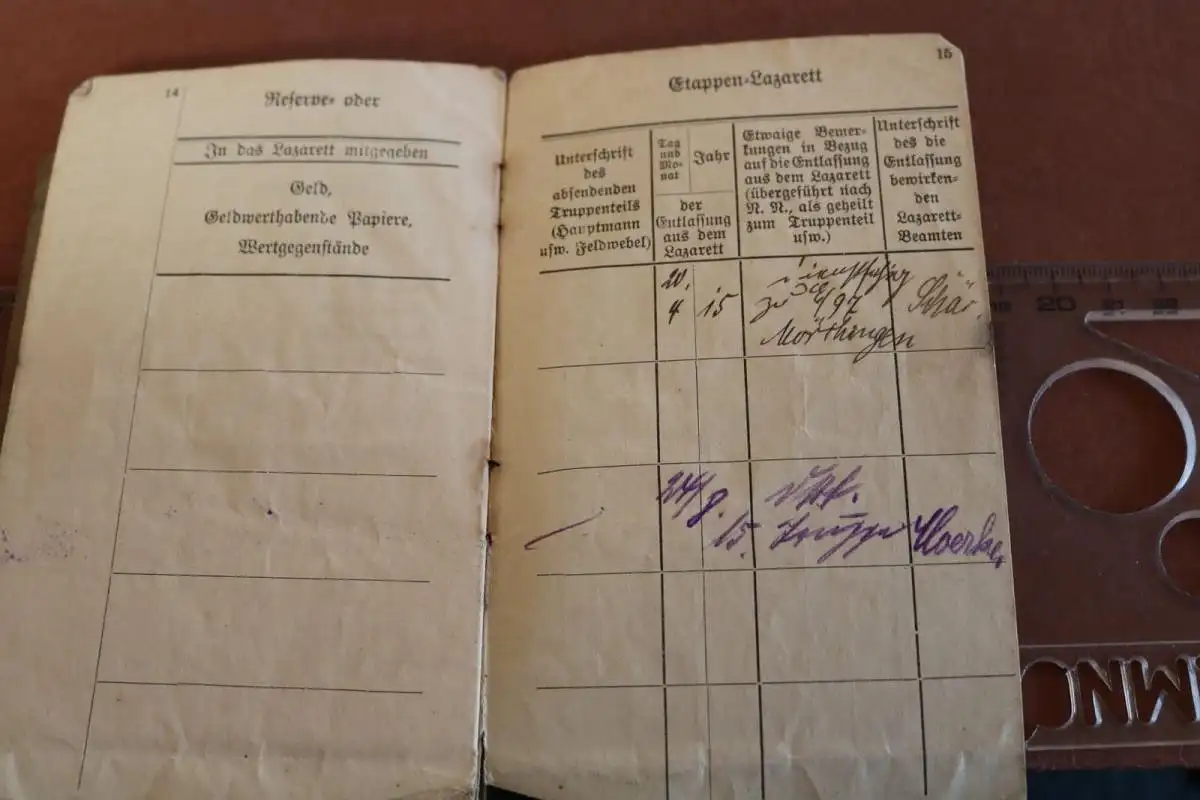 14
Reserve- oder
In das Lazarett mitgegeben
Geld,
Geldwerthabende Papiere,
Wertgegenstände
15
Etappen-Lazarett
Unterschrift
des
absendenden
Truppenteils
(Hauptmann
usw. Feldwebel)
Tag
und
Mo-
nat
Jahr
der
Entlassung
aus dem
Lazarett
Etwaige Bemer-
kungen in Bezug
auf die Entlassung
aus dem Lazarett
(übergeführt nach
N. N., als geheilt
zum Truppenteil
usw.)
Unterschrift
des die
Entlassung
bewirken-
den
Lazarett-
Beamten
20.
4 15
zu 97
Mörchingen
24/8.
15. Truppe
20 21 22